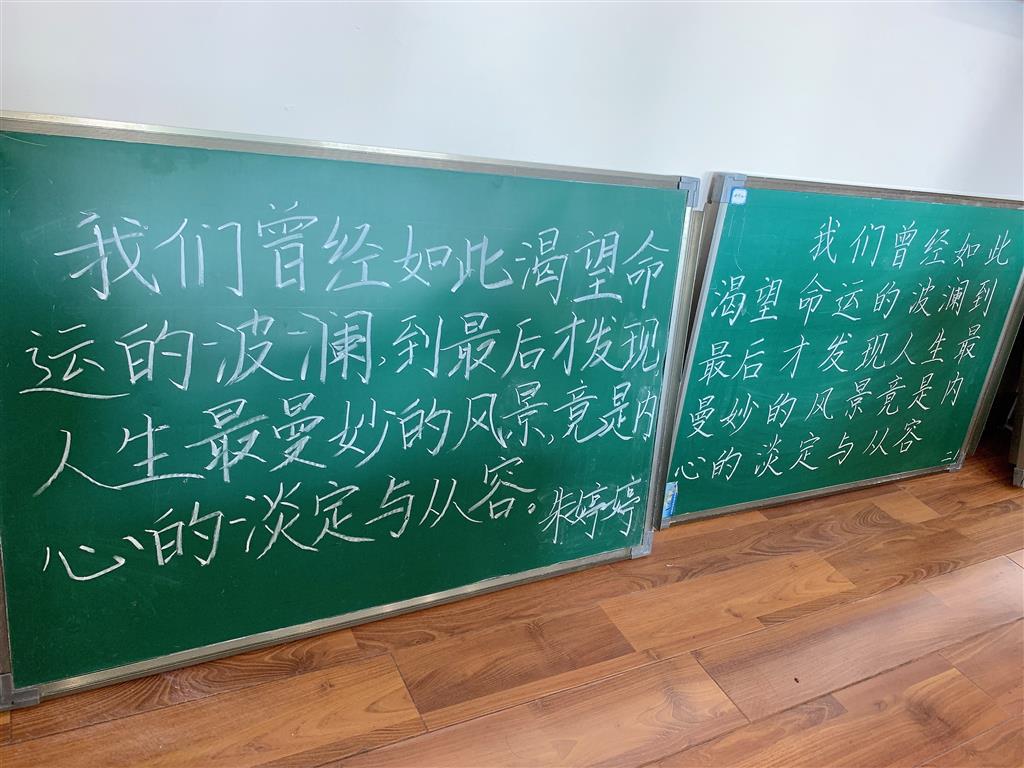 我们曾经如此渴望命
运的波澜,到最后才发现
人生最曼妙的风景,竟是内
心的淡定与从容。朱婷婷
我们曾经如此
渴望命运的波澜到
最后才发现人生最
曼妙的风景竟是内
心的淡定与从容